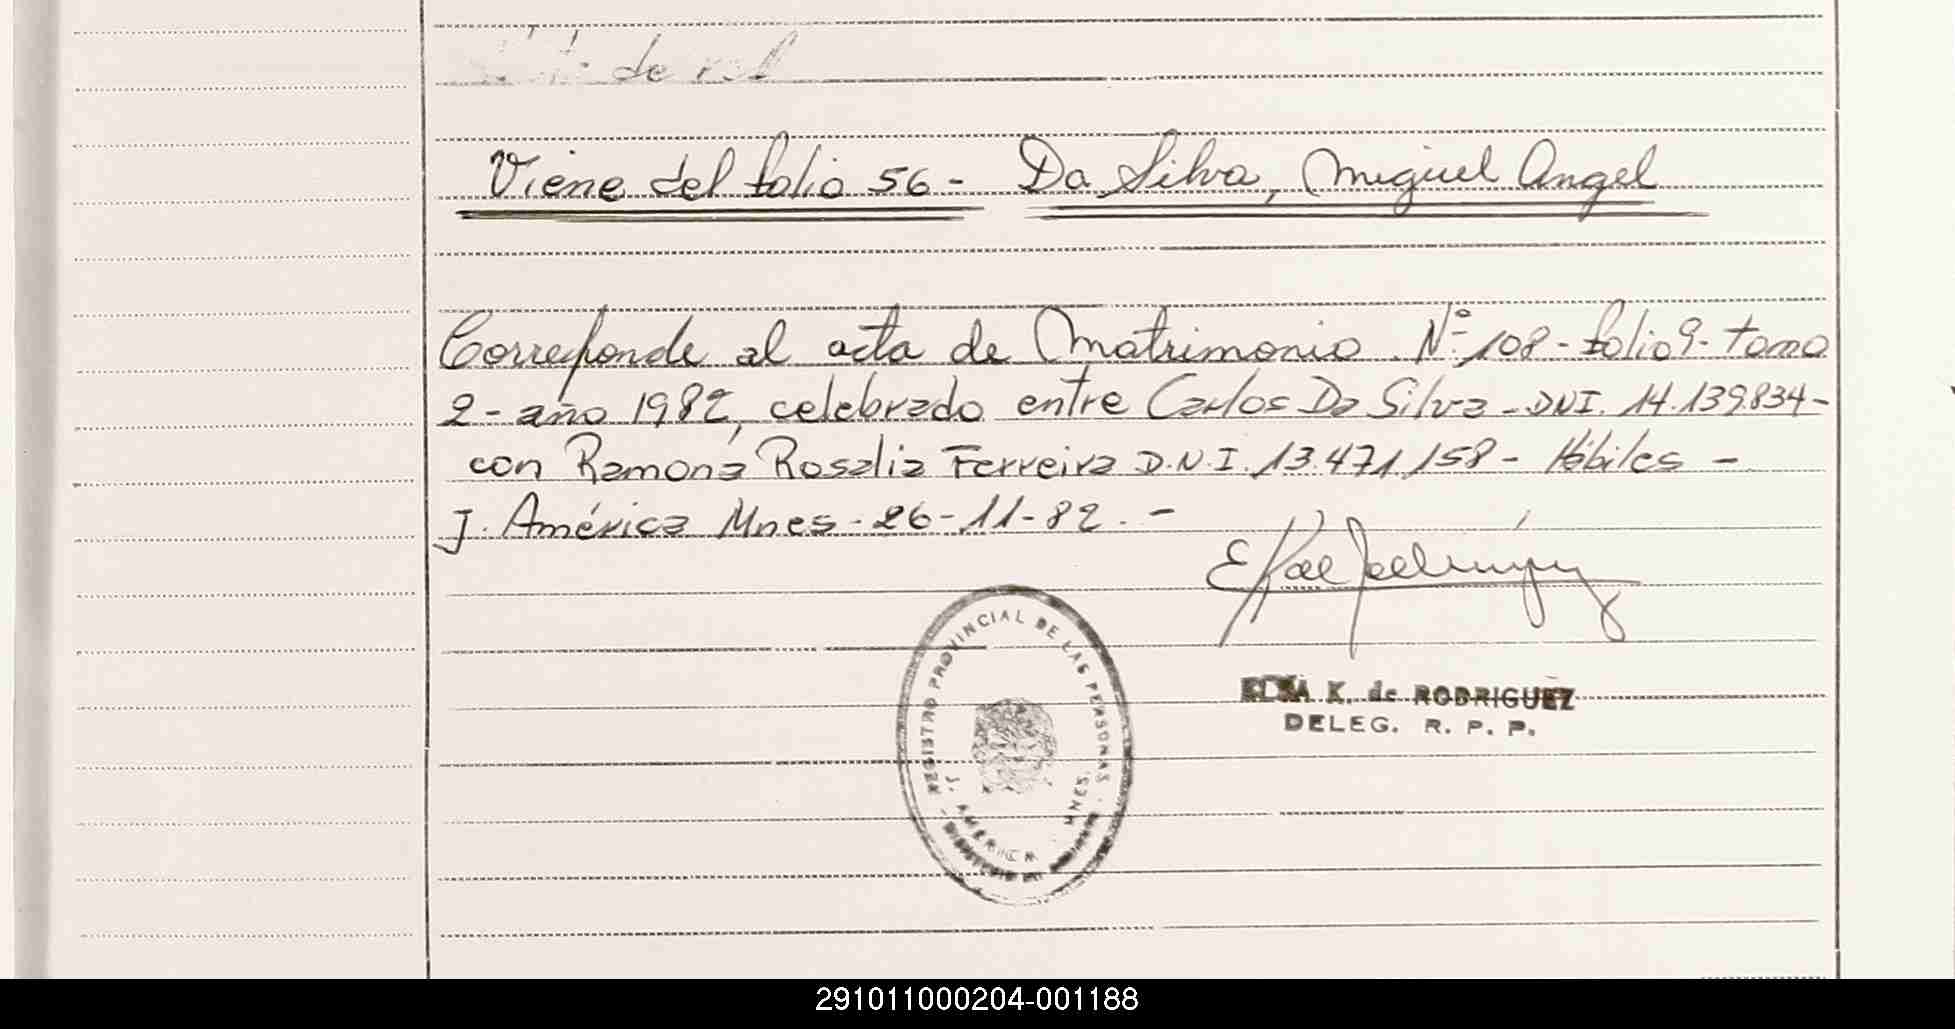 de
Viene del folio 56 - Da Silva, Miguel Angel
Corresponde al acta de Matrimonio Nº 108 - folio 9 - tomo
2 - año 1982, celebrado entre Carlos Da Silva - DNI. 14.139.834 -
con Ramona Rosalia Ferreira D.N.I. 13.471.158 - Hábiles -
J. América Mnes - 26 - 11 - 82. -
ELSA K. de RODRIGUEZ
DELEG. R. P. P.
REGISTRO PROVINCIAL DE LAS PERSONAS
J. AMERICA MNES.
291011000204-001188